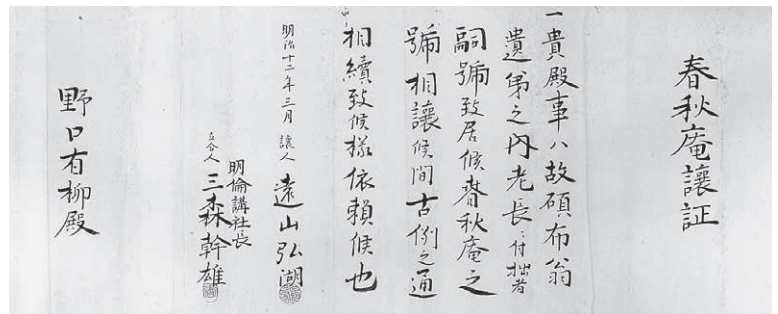 春秋庵讓証
一貴殿事ハ故碩布翁
遺弟之内老長ニ付拙者
嗣號致居候春秋庵之
號相讓候間古例之通
相續致候樣依賴候也
明治十二年三月 讓人 遠山弘湖
明倫講社長
立合人 三森幹雄
野口有柳殿